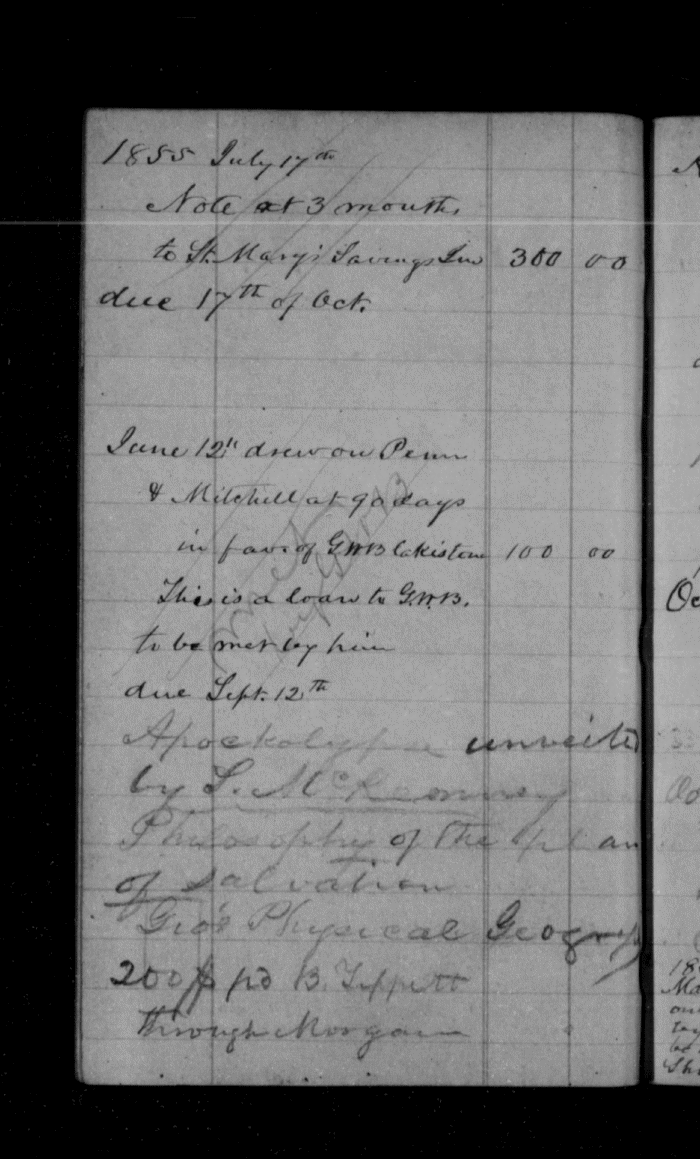 1855 July 17th
Note at 3 months
to St. Mary's Savings Ins 300 00
due 17th of Oct.
June 12th drew on Penn
& Mitchell at 90 days
in favor of G.W. Blakistone 100 00
This is a loan to G.W.B.
to be met by him
due Sept. 12th
Apockolypse unveiled
by S. McKenney
Philosophy of the plan
of Salvation
Physical Geography
200 $ pd B. Tippett
through Morgan